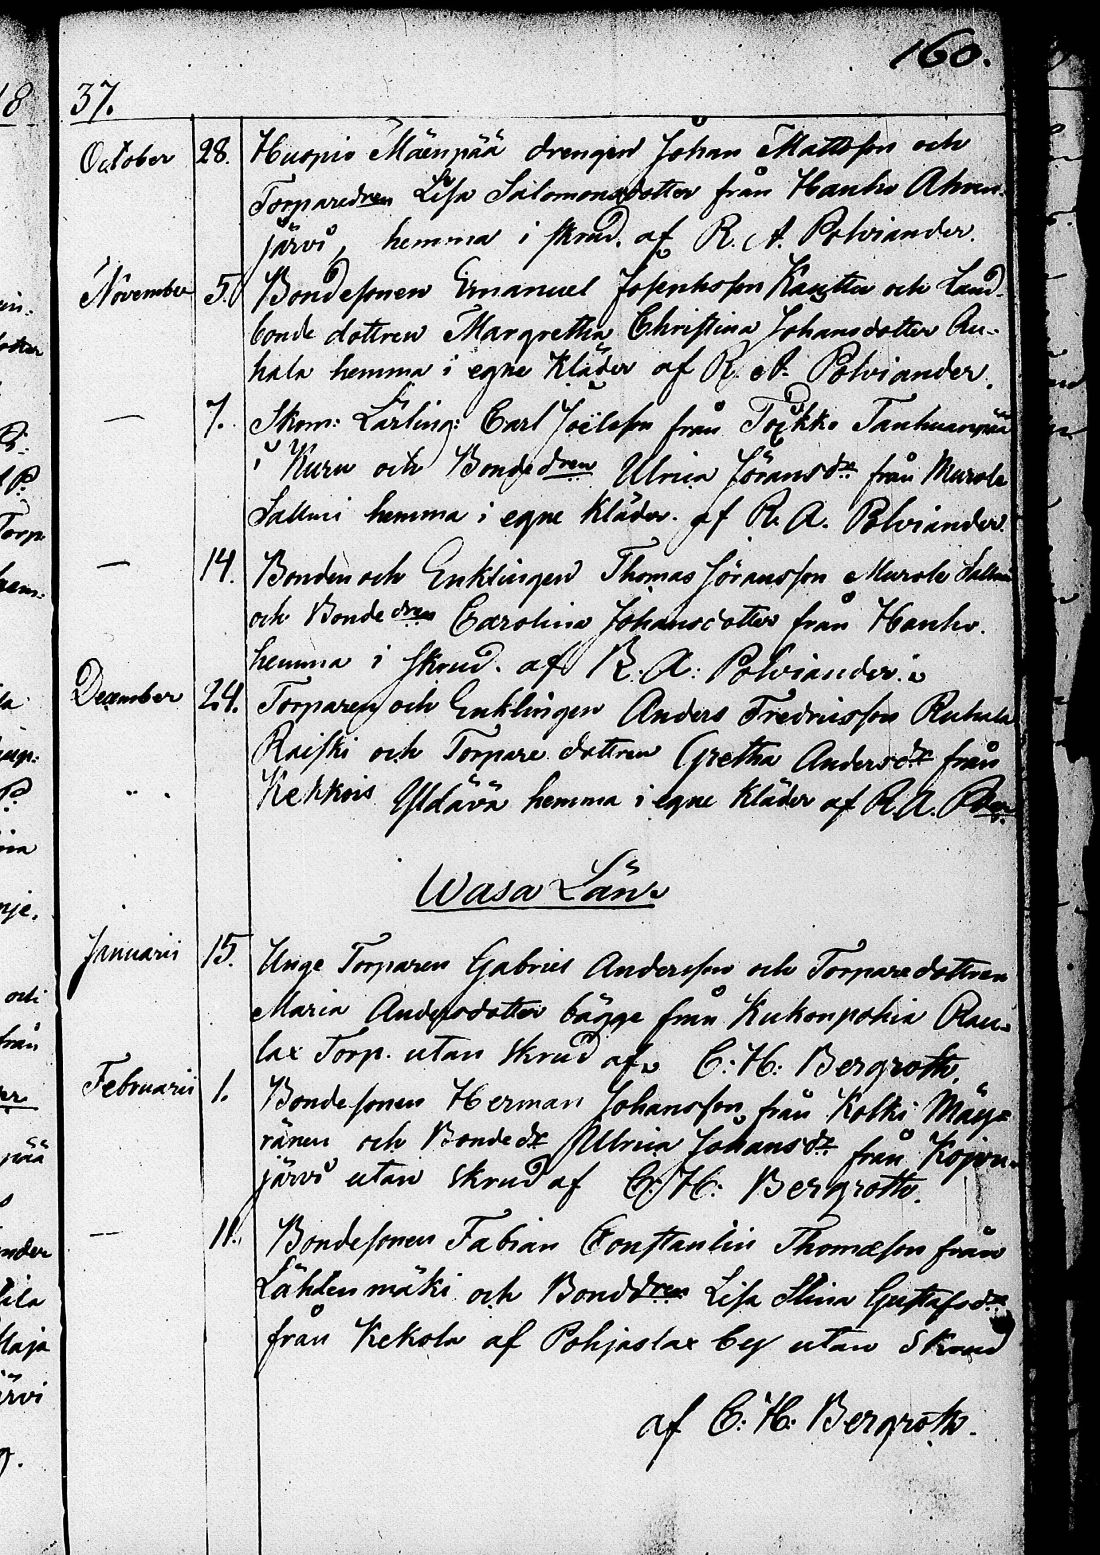 160.
18 37.
October 28. Huopio Mäenpää drengen Johan Mattsson och
Torparedren Lisa Salomonsdotter från Hanho Ahven-
järvi, hemma i skrud. af R. A. Polviander.
November 5. Bondesonen Emanuel Josephsson Kantta och Land-
bonde dottren Margretha Christina Johansdotter Au-
hala hemma i egne Kläder af R. A. Polviander.
— 7. Skom: Lärling: Carl Joëlsson från Poikko Tanhuanpää
i Kuru och Bondedren Ulrica Jöransdr från Murole
Sallmi hemma i egne Kläder. af R. A. Polviander.
— 14. Bonden och Enklingen Thomas Jöransson Murole Sallmi
och Bondedren Carolina Johansdotter från Hanho.
hemma i skrud. af R. A: Polviander.
December 24. Torparen och Enklingen Anders Fredriksson Ruhala
Raiski och Torpare dottren Gretha Andersdr från
Kekkois Yldävä hemma i egne kläder af R. A. Pder.
Wasa Län.
Januarii 15. Unge Torparen Gabriel Andersson och Torparedottren
Maria Andersdotter bägge från Kukonpohia Rau-
lax Torp. utan skrud af C: H: Bergroth.
Februarii 1. Bondesonen Herman Johansson från Kolki Mäyrä-
ränen och Bondedr Ulrica Johansdr från Kojvu-
järvi utan skrud af C: H: Bergroth.
— 11. Bondesonen Fabian Constantin Thomasson från
Lähdenmäki och Bonddren Lisa Stina Gustafsdr
från Kekola af Pohjaslax by utan Skrud
af C: H: Bergroth.